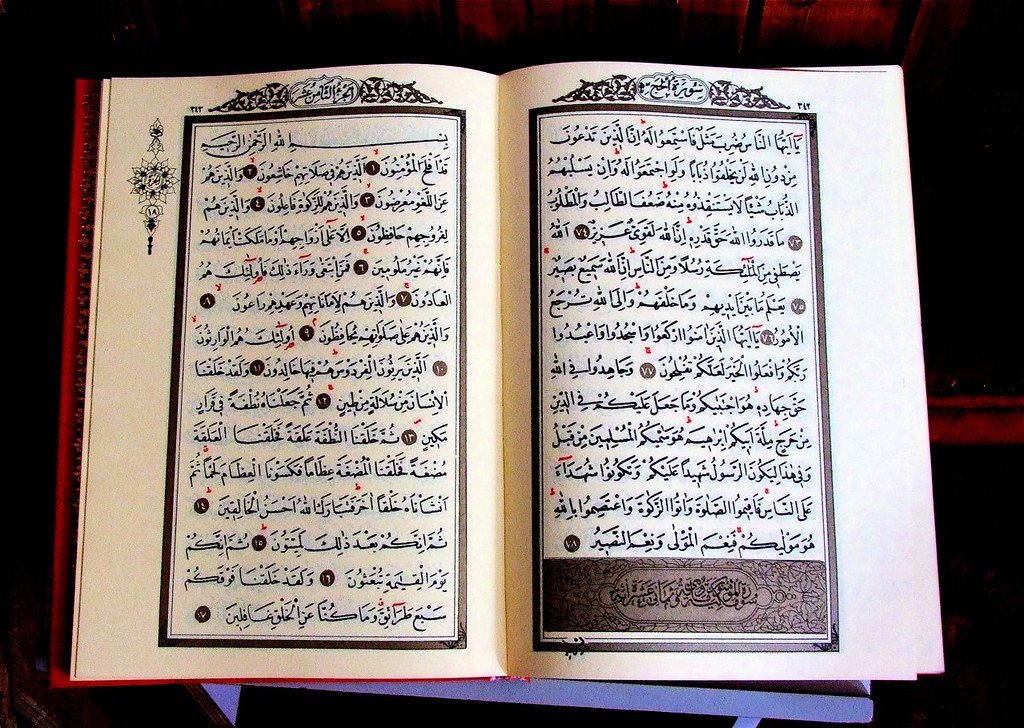 ٣٤٢
سورة الحج
يَا أَيُّهَا النَّاسُ ضُرِبَ مَثَلٌ فَاسْتَمِعُوا لَهُ إِنَّ الَّذِينَ تَدْعُونَ
مِنْ دُونِ اللهِ لَنْ يَخْلُقُوا ذُبَابًا وَلَوِ اجْتَمَعُوا لَهُ وَإِنْ يَسْلُبْهُمُ
الذُّبَابُ شَيْئًا لَا يَسْتَنْقِذُوهُ مِنْهُ ضَعُفَ الطَّالِبُ وَالْمَطْلُوبُ
٧٣ مَا قَدَرُوا اللهَ حَقَّ قَدْرِهِ إِنَّ اللهَ لَقَوِيٌّ عَزِيزٌ ٧٤ اَللهُ
يَصْطَفِي مِنَ الْمَلٰئِكَةِ رُسُلًا وَمِنَ النَّاسِ إِنَّ اللهَ سَمِيعٌ بَصِيرٌ
٧٥ يَعْلَمُ مَا بَيْنَ أَيْدِيهِمْ وَمَا خَلْفَهُمْ وَإِلَى اللهِ تُرْجَعُ
الْأُمُورُ ٧٦ يَا أَيُّهَا الَّذِينَ اٰمَنُوا ارْكَعُوا وَاسْجُدُوا وَاعْبُدُوا
رَبَّكُمْ وَافْعَلُوا الْخَيْرَ لَعَلَّكُمْ تُفْلِحُونَ ٧٧ وَجَاهِدُوا فِي اللهِ
حَقَّ جِهَادِهِ هُوَ اجْتَبٰيكُمْ وَمَا جَعَلَ عَلَيْكُمْ فِي الدِّينِ
مِنْ حَرَجٍ مِلَّةَ أَبِيكُمْ إِبْرٰهِيمَ هُوَ سَمّٰيكُمُ الْمُسْلِمِينَ مِنْ قَبْلُ
وَفِي هٰذَا لِيَكُونَ الرَّسُولُ شَهِيدًا عَلَيْكُمْ وَتَكُونُوا شُهَدَاءَ
عَلَى النَّاسِ فَأَقِيمُوا الصَّلٰوةَ وَاٰتُوا الزَّكٰوةَ وَاعْتَصِمُوا بِاللهِ
هُوَ مَوْلٰيكُمْ فَنِعْمَ الْمَوْلٰى وَنِعْمَ النَّصِيرُ ٧٨
الجزء الثامن عشر
٣٤٣
١٨
بِسْمِ اللهِ الرَّحْمٰنِ الرَّحِيمِ
قَدْ أَفْلَحَ الْمُؤْمِنُونَ ١ اَلَّذِينَ هُمْ فِي صَلَاتِهِمْ خَاشِعُونَ ٢ وَالَّذِينَ هُمْ
عَنِ اللَّغْوِ مُعْرِضُونَ ٣ وَالَّذِينَ هُمْ لِلزَّكٰوةِ فَاعِلُونَ ٤ وَالَّذِينَ هُمْ
لِفُرُوجِهِمْ حَافِظُونَ ٥ إِلَّا عَلٰى أَزْوَاجِهِمْ أَوْ مَا مَلَكَتْ أَيْمَانُهُمْ
فَإِنَّهُمْ غَيْرُ مَلُومِينَ ٦ فَمَنِ ابْتَغٰى وَرَاءَ ذٰلِكَ فَأُولٰئِكَ هُمُ
الْعَادُونَ ٧ وَالَّذِينَ هُمْ لِأَمَانَاتِهِمْ وَعَهْدِهِمْ رَاعُونَ ٨
وَالَّذِينَ هُمْ عَلٰى صَلَوَاتِهِمْ يُحَافِظُونَ ٩ أُولٰئِكَ هُمُ الْوَارِثُونَ
١٠ اَلَّذِينَ يَرِثُونَ الْفِرْدَوْسَ هُمْ فِيهَا خَالِدُونَ ١١ وَلَقَدْ خَلَقْنَا
الْإِنْسَانَ مِنْ سُلَالَةٍ مِنْ طِينٍ ١٢ ثُمَّ جَعَلْنَاهُ نُطْفَةً فِي قَرَارٍ
مَكِينٍ ١٣ ثُمَّ خَلَقْنَا النُّطْفَةَ عَلَقَةً فَخَلَقْنَا الْعَلَقَةَ
مُضْغَةً فَخَلَقْنَا الْمُضْغَةَ عِظَامًا فَكَسَوْنَا الْعِظَامَ لَحْمًا ثُمَّ
أَنْشَأْنَاهُ خَلْقًا اٰخَرَ فَتَبَارَكَ اللهُ أَحْسَنُ الْخَالِقِينَ ١٤
ثُمَّ إِنَّكُمْ بَعْدَ ذٰلِكَ لَمَيِّتُونَ ١٥ ثُمَّ إِنَّكُمْ
يَوْمَ الْقِيٰمَةِ تُبْعَثُونَ ١٦ وَلَقَدْ خَلَقْنَا فَوْقَكُمْ
سَبْعَ طَرَائِقَ وَمَا كُنَّا عَنِ الْخَلْقِ غَافِلِينَ ١٧